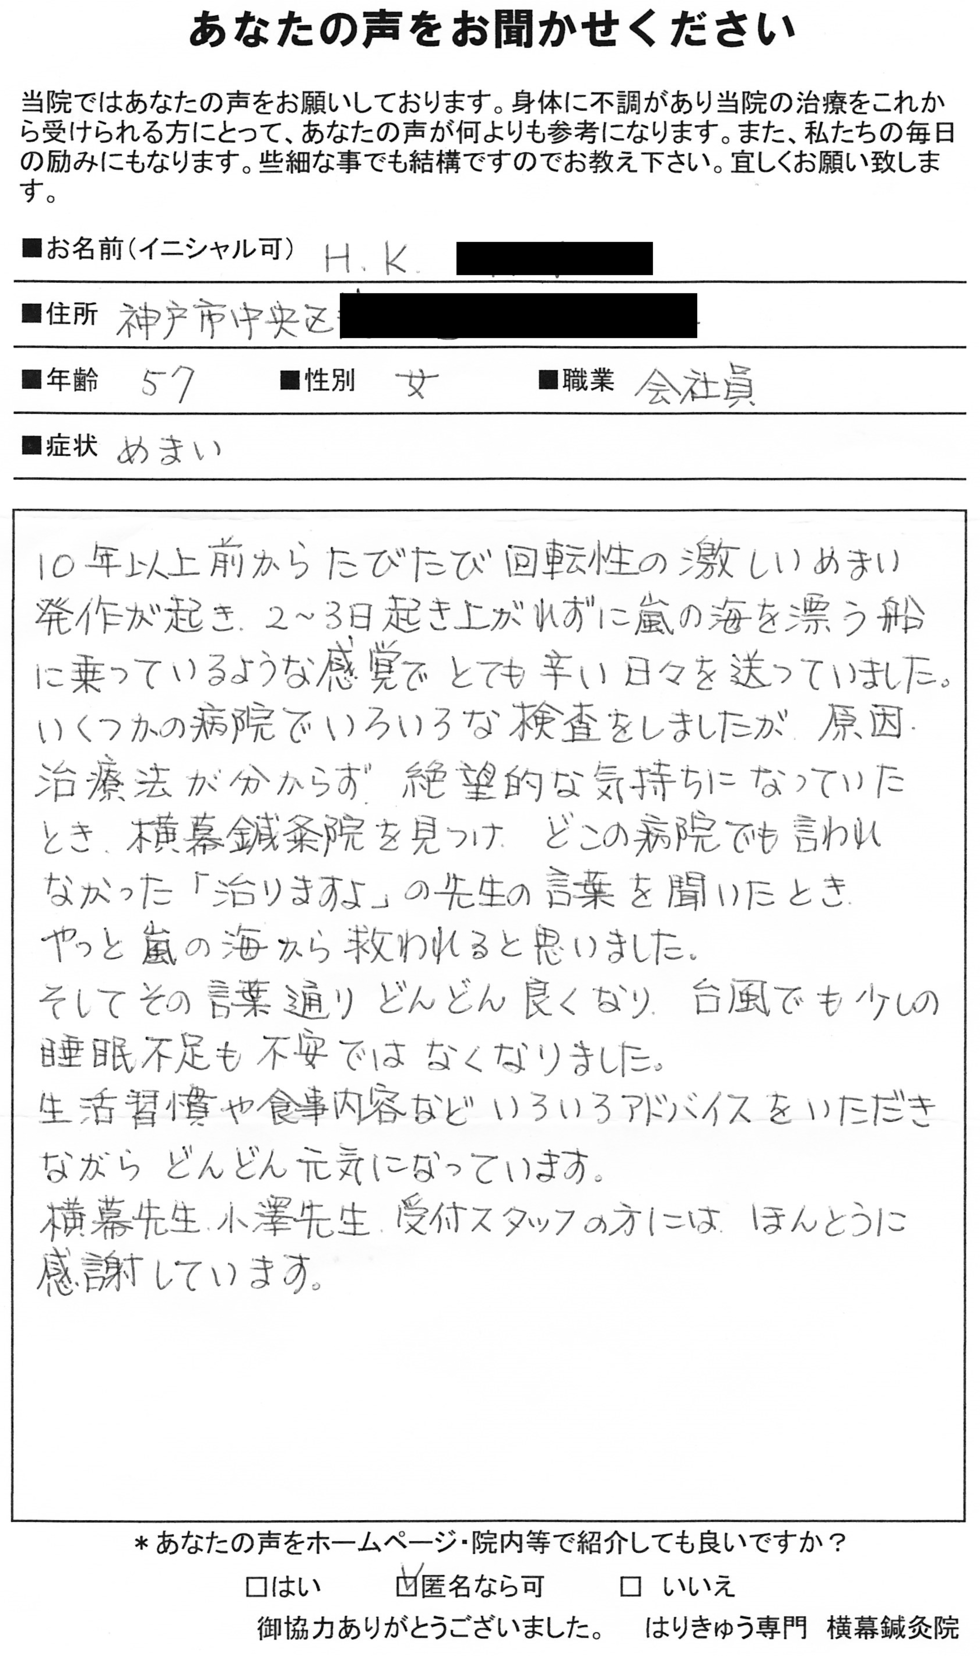 あなたの声をお聞かせください
当院ではあなたの声をお願いしております。身体に不調があり当院の治療をこれか
ら受けられる方にとって、あなたの声が何よりも参考になります。また、私たちの毎日
の励みにもなります。些細な事でも結構ですのでお教え下さい。宜しくお願い致しま
す。
■お名前（イニシャル可） H.K.
■住所 神戸市中央区
■年齢 57 ■性別 女 ■職業 会社員
■症状 めまい
10年以上前からたびたび回転性の激しいめまい
発作が起き、2～3日起き上がれずに嵐の海を漂う船
に乗っているような感覚でとても辛い日々を送っていました。
いくつかの病院でいろいろな検査をしましたが、原因、
治療法が分からず、絶望的な気持ちになっていた
とき、横幕鍼灸院を見つけ、どこの病院でも言われ
なかった「治りますよ」の先生の言葉を聞いたとき、
やっと嵐の海から救われると思いました。
そしてその言葉通りどんどん良くなり、台風でも少しの
睡眠不足も不安ではなくなりました。
生活習慣や食事内容などいろいろアドバイスをいただき
ながらどんどん元気になっています。
横幕先生、小澤先生、受付スタッフの方には、ほんとうに
感謝しています。
＊あなたの声をホームページ・院内等で紹介しても良いですか？
□はい ☑匿名なら可 □ いいえ
御協力ありがとうございました。 はりきゅう専門 横幕鍼灸院